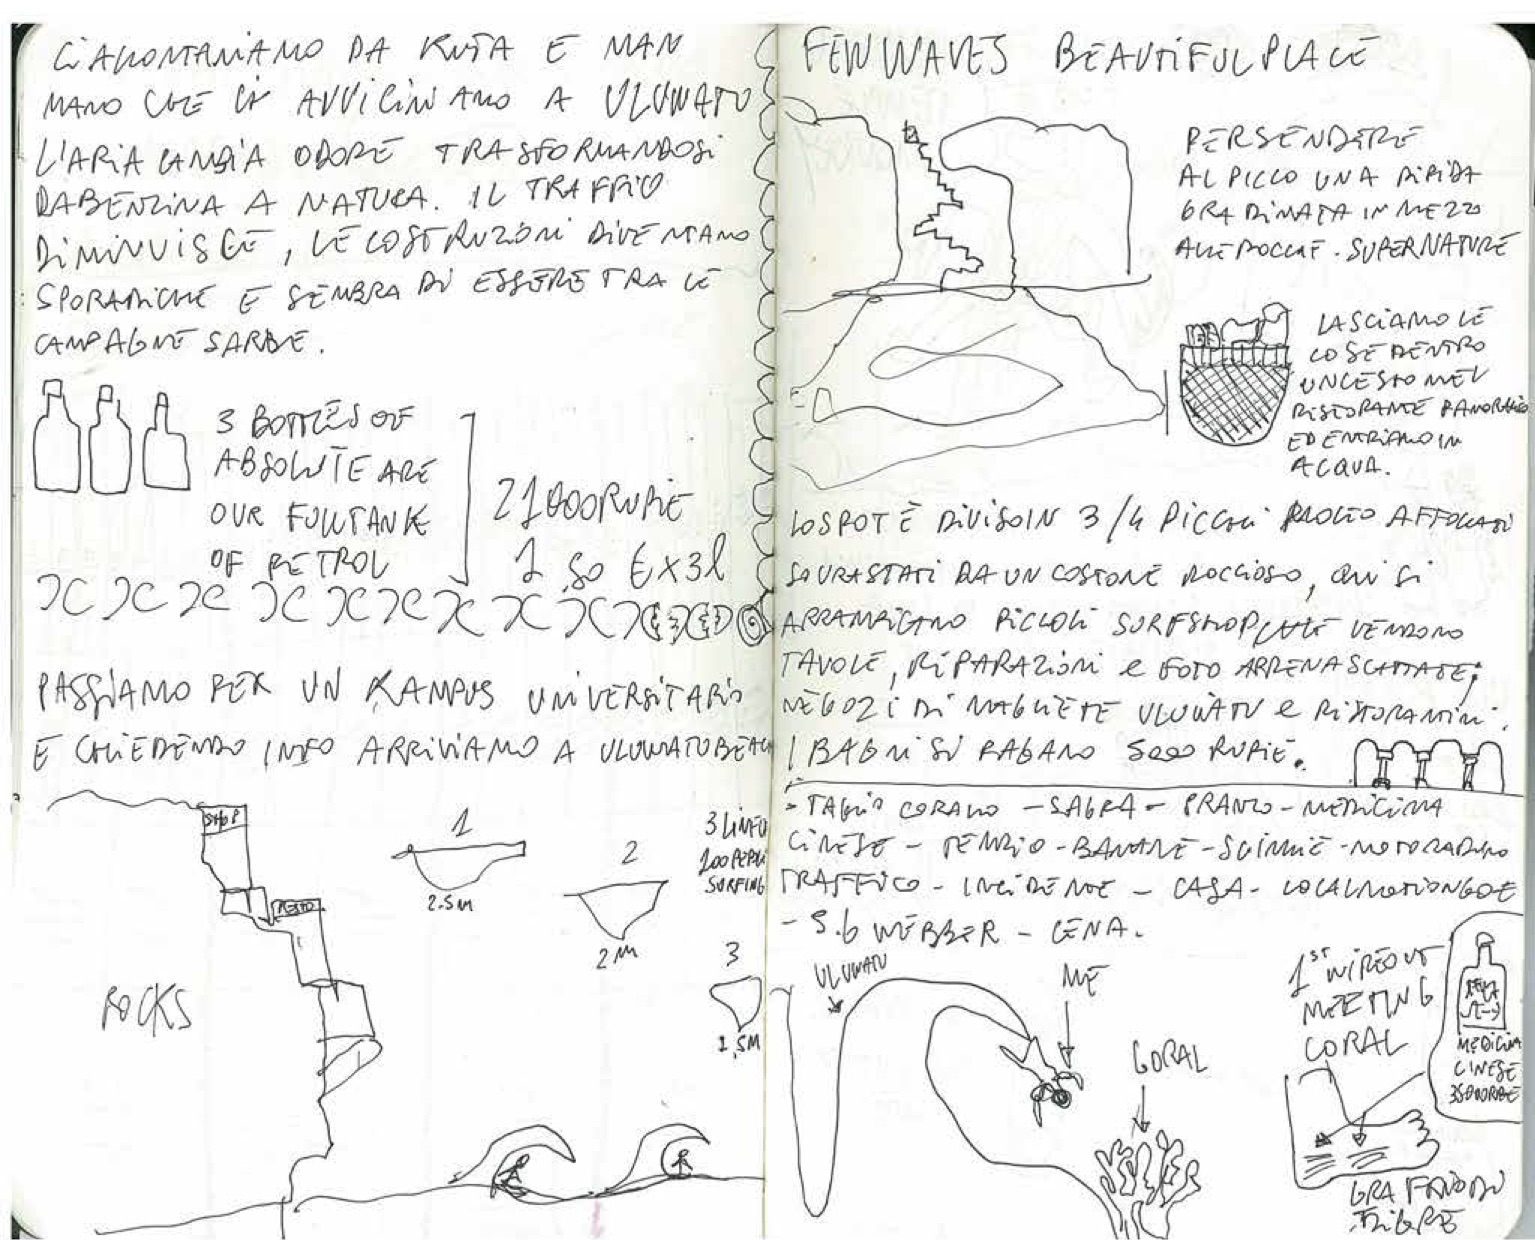 CI ALLONTANIAMO DA KUTA E MAN
MANO CHE CI AVVICINIAMO A ULUWATU
L'ARIA CAMBIA ODORE TRASFORMANDOSI
DA BENZINA A NATURA. IL TRAFFICO
DIMINUISCE, LE COSTRUZIONI DIVENTANO
SPORADICHE E SEMBRA DI ESSERE TRA LE
CAMPAGNE SARDE.
3 BOTTLES OF
ABSOLUTE ARE
OUR FULLTANK
OF PETROL
21000 RUPIE
1,50 € X 3l
PASSIAMO PER UN KAMPUS UNIVERSITARIO
E CHIEDENDO INFO ARRIVIAMO A ULUWATU BEACH
SHOP
RESTO
ROCKS
1
2.5M
2
2M
3
1,5M
3 LINEUP
200 PEOPLE
SURFING
FEW WAVES BEAUTIFUL PLACE
PER SCENDERE
AL PICCO UNA RIPIDA
GRADINATA IN MEZZO
ALLE ROCCE. SUPERNATURE
LASCIAMO LE
COSE DENTRO
UN CESTO NEL
RISTORANTE PANORAMICO
ED ENTRIAMO IN
ACQUA.
LO SPOT È DIVISO IN 3/4 PICCHI MOLTO AFFOLLATI
SOVRASTATI DA UN COSTONE ROCCIOSO, QUI SI
ARRAMPICANO PICCOLI SURFSHOP CHE VENDONO
TAVOLE, RIPARAZIONI e FOTO APPENA SCATTATE,
NEGOZI DI MAGLIETTE ULUWATU e RISTORANTINI.
I BAGNI SI PAGANO 5000 RUPIE.
- TAGLIO CORALLO - SAGRA - PRANZO - MEDICINA
CINESE - TEMPIO - BANANE - SCIMMIE - MOTORADUNO
TRAFFICO - INCIDENTE - CASA - LOCALMOTION
- 5.6 WEBBER - CENA.
ULUWATU
ME
CORAL
1ST WIPEOUT
MEETING
CORAL
MEDICINA
CINESE
GRAFFIO DI
TIGRE